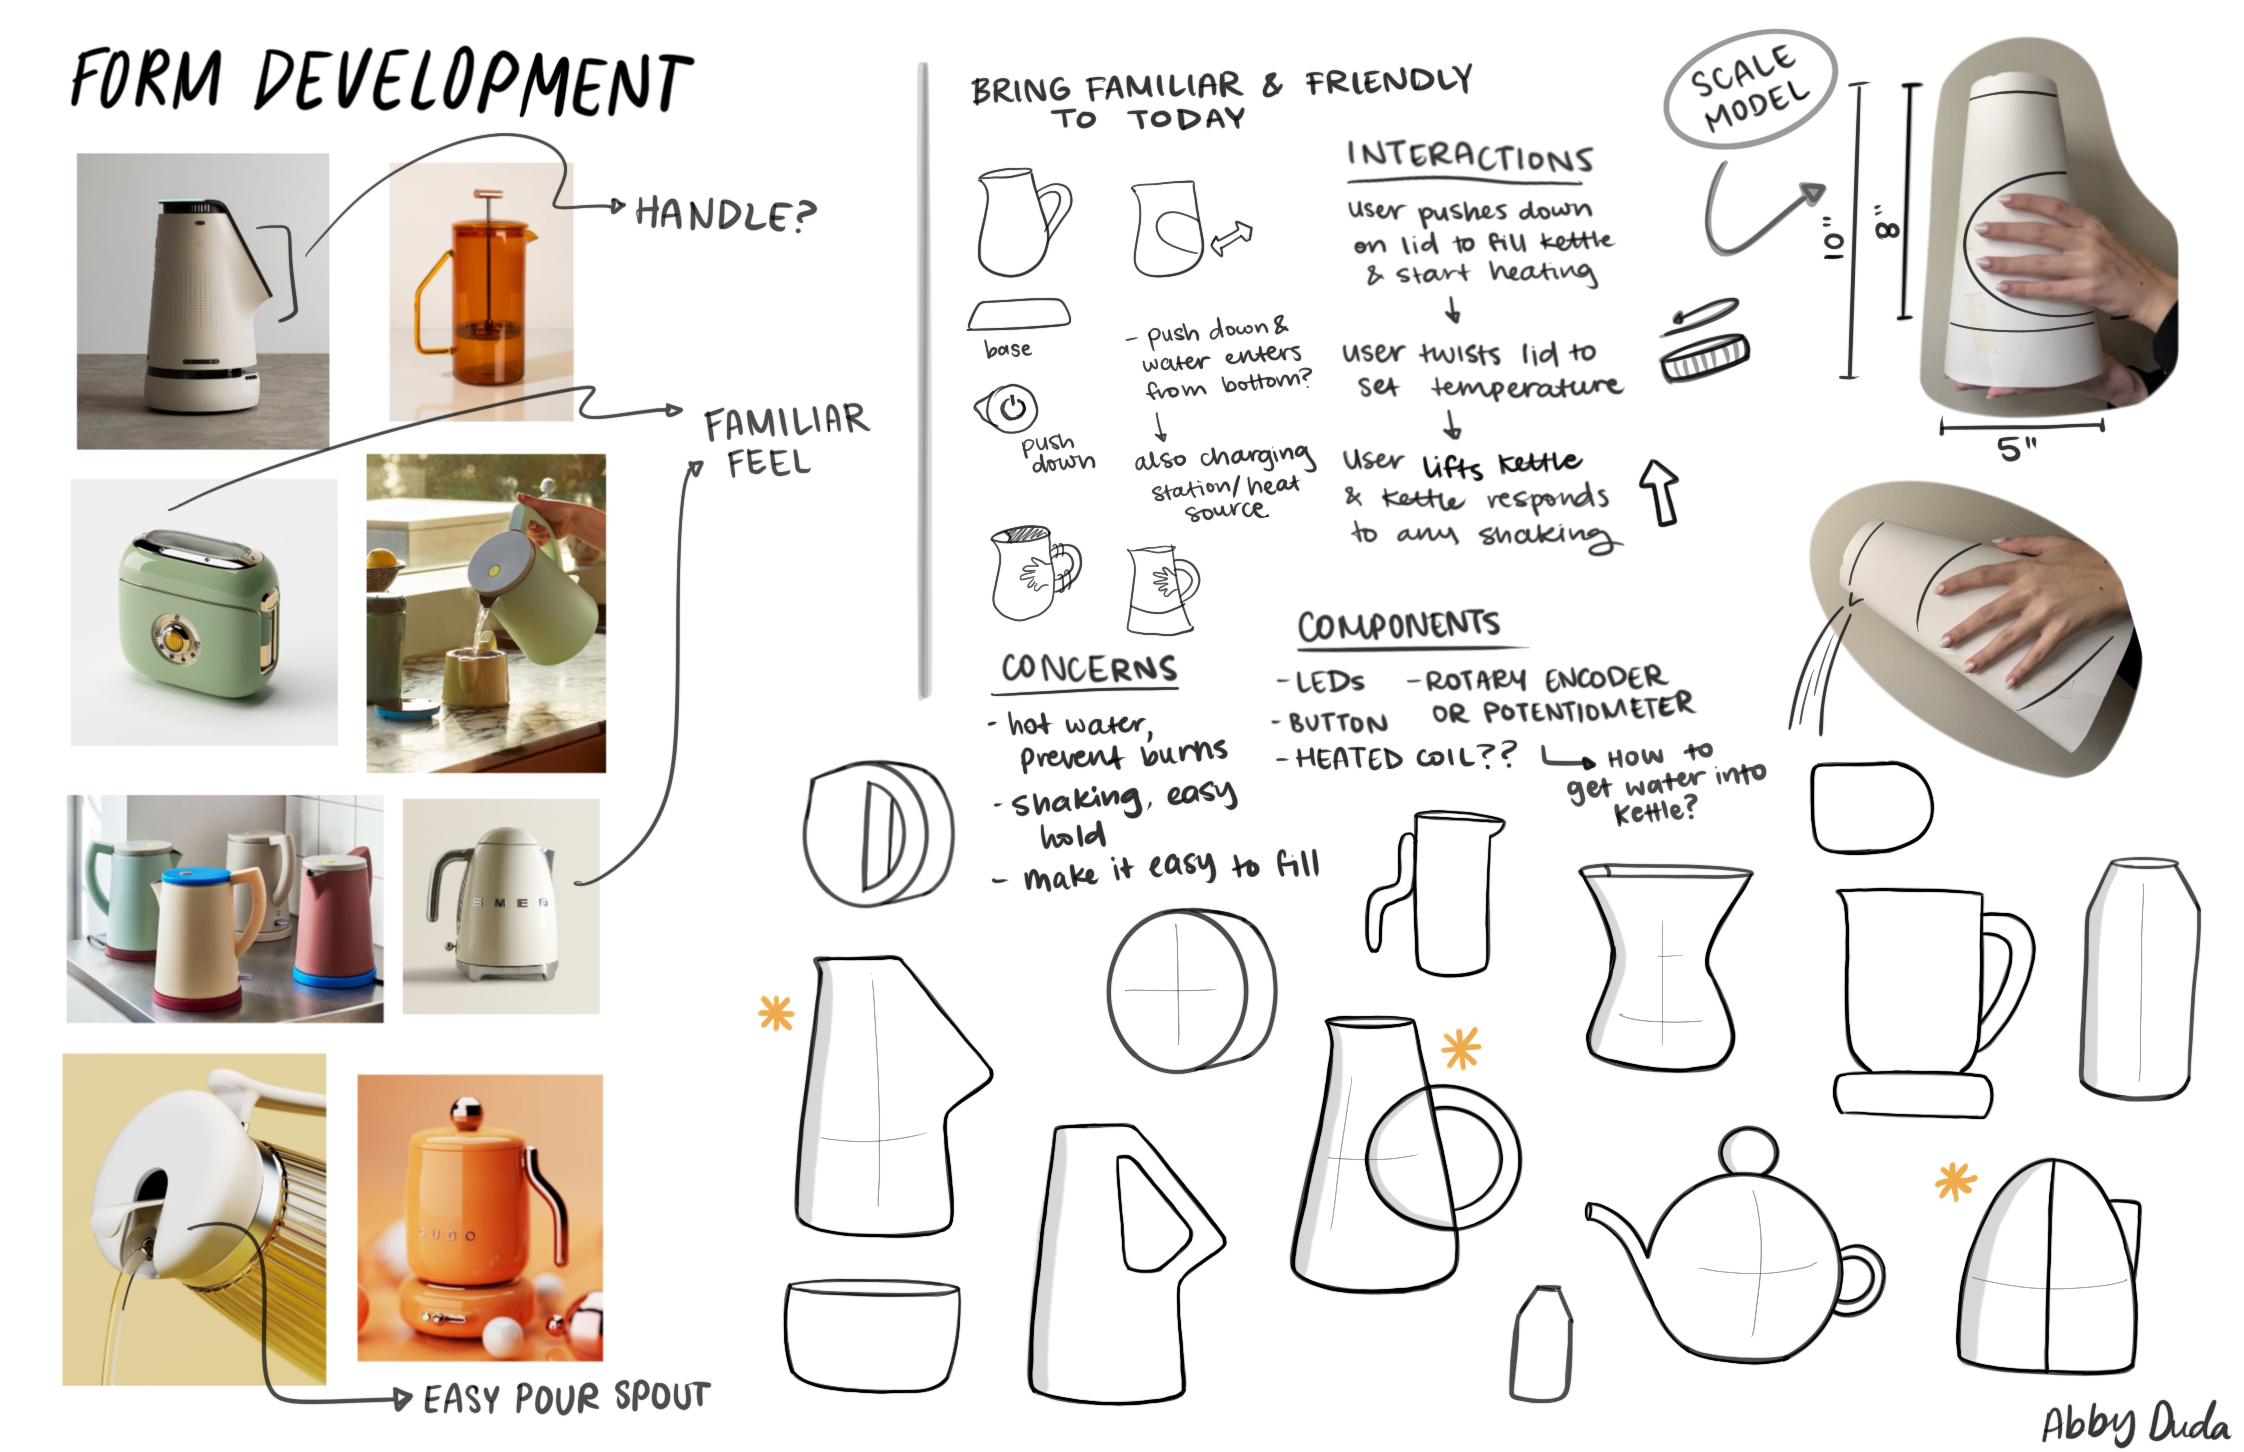 FORM DEVELOPMENT
HANDLE?
FAMILIAR
FEEL
SMEG
SUDO
EASY POUR SPOUT
BRING FAMILIAR & FRIENDLY
TO TODAY
base
push
down
- push down &
water enters
from bottom?
also charging
station/heat
source
INTERACTIONS
user pushes down
on lid to fill kettle
& start heating
user twists lid to
set temperature
user lifts kettle
& kettle responds
to any shaking
SCALE
MODEL
10"
8"
5"
CONCERNS
- hot water,
prevent burns
- shaking, easy
hold
- make it easy to fill
COMPONENTS
- LEDs
- BUTTON
- HEATED COIL??
- ROTARY ENCODER
OR POTENTIOMETER
HOW to
get water into
kettle?
Abby Duda